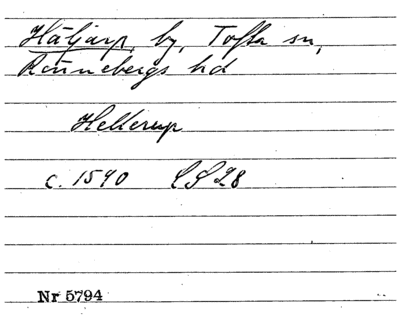 Häljarp, by, Tofta sn,
Rönnebergs hd
Hellerup
c. 1590 LS 28
Nr 5794